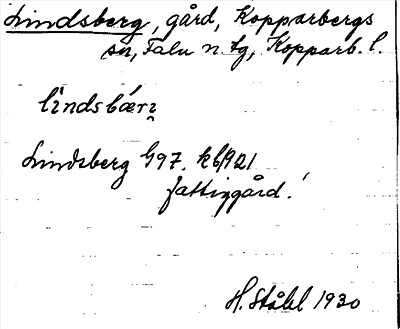 Lindsberg, gård, Kopparbergs
sn, Falu n. tg, Kopparb. l.
Lindsberg G97. kbl 921
fattiggård!
H. Ståhl 1930